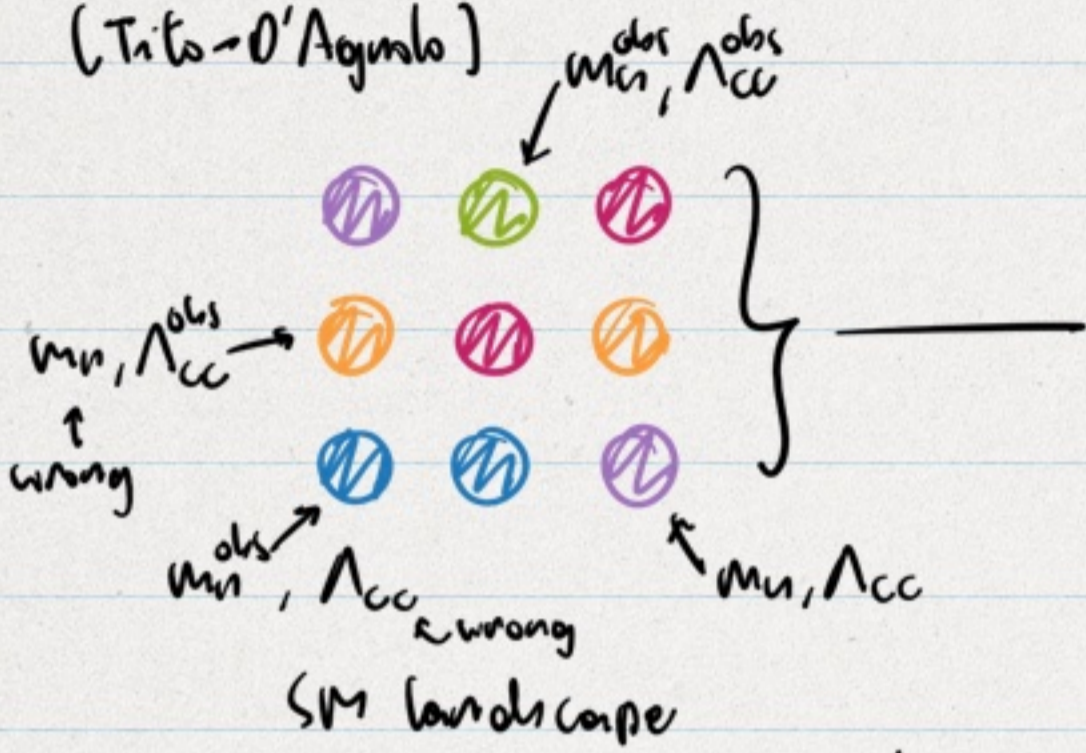 (Tito-D'Agnolo)
m_h^obs, Λ_cc^obs
m_h, Λ_cc^obs
↑
wrong
m_h^obs, Λ_cc
wrong
m_h, Λ_cc
SM landscape